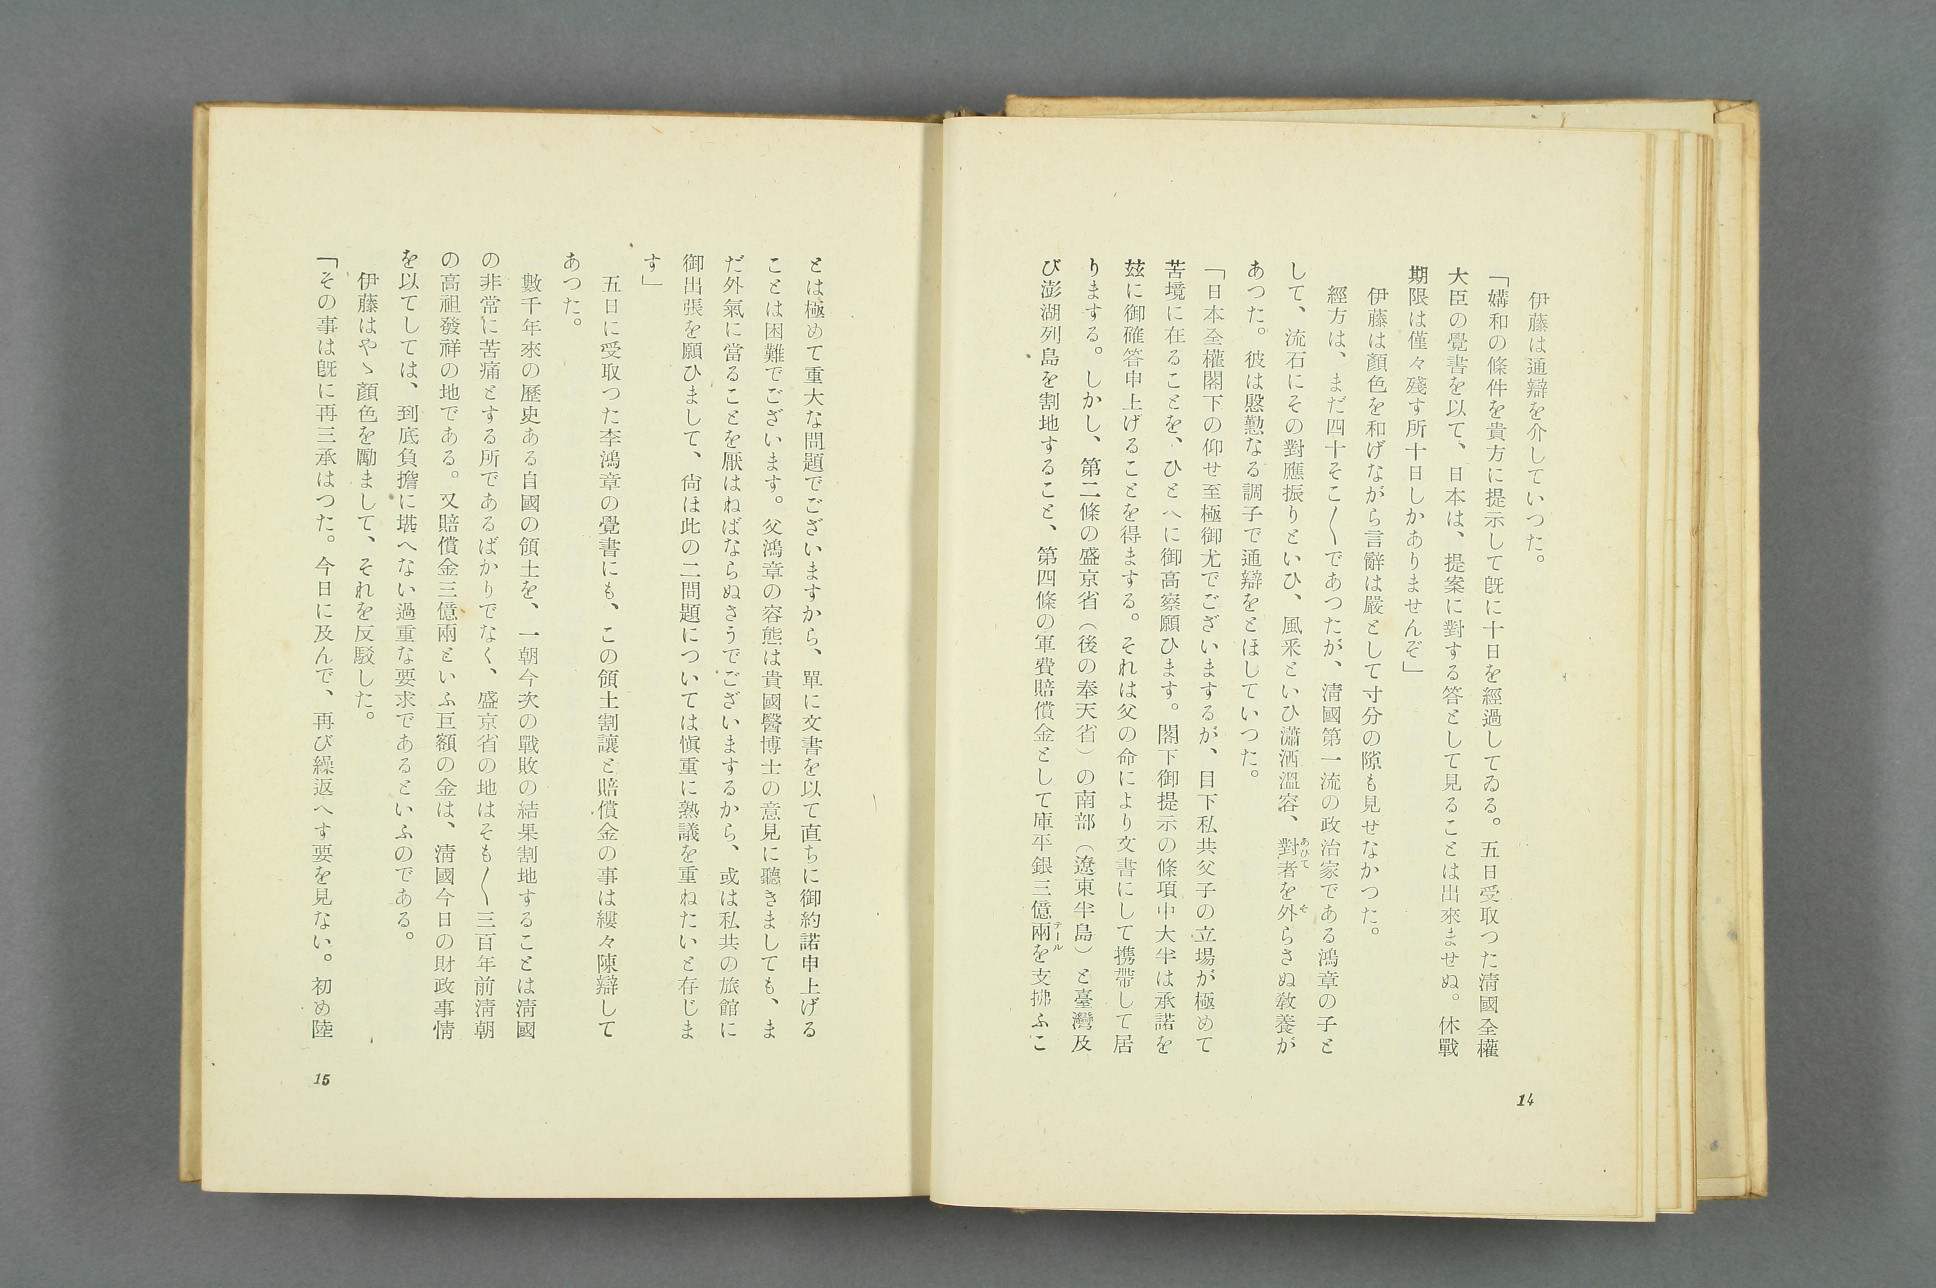 伊藤は通辯を介していつた。
「媾和の條件を貴方に提示して旣に十日を經過してゐる。五日受取つた淸國全權
大臣の覺書を以て、日本は、提案に對する答として見ることは出來ませぬ。休戰
期限は僅々殘す所十日しかありませんぞ」
伊藤は顏色を和げながら言辭は嚴として寸分の隙も見せなかつた。
經方は、まだ四十そこ〳〵であつたが、淸國第一流の政治家である鴻章の子と
して、流石にその對應振りといひ、風釆といひ瀟洒溫容、對者を外らさぬ敎養が
あつた。彼は慇懃なる調子で通辯をとほしていつた。
「日本全權閣下の仰せ至極御尤でございまするが、目下私共父子の立場が極めて
苦境に在ることを、ひとへに御高察願ひます。閣下御提示の條項中大半は承諾を
玆に御確答申上げることを得まする。それは父の命により文書にして携帶して居
りまする。しかし、第二條の盛京省（後の奉天省）の南部（遼東半島）と臺灣及
び澎湖列島を割地すること、第四條の軍費賠償金として庫平銀三億兩を支拂ふこ
14
とは極めて重大な問題でございますから、單に文書を以て直ちに御約諾申上げる
ことは困難でございます。父鴻章の容態は貴國醫博士の意見に聽きましても、ま
だ外氣に當ることを厭はねばならぬさうでございまするから、或は私共の旅館に
御出張を願ひまして、尙は此の二問題については愼重に熟議を重ねたいと存じま
す」
五日に受取つた李鴻章の覺書にも、この領土割讓と賠償金の事は縷々陳辯して
あつた。
數千年來の歷史ある自國の領土を、一朝今次の戰敗の結果割地することは淸國
の非常に苦痛とする所であるばかりでなく、盛京省の地はそも〳〵三百年前淸朝
の高祖發祥の地である。又賠償金三億兩といふ巨額の金は、淸國今日の財政事情
を以てしては、到底負擔に堪へない過重な要求であるといふのである。
伊藤はやゝ顏色を勵まして、それを反駁した。
「その事は旣に再三承はつた。今日に及んで、再び繰返へす要を見ない。初め陸
15